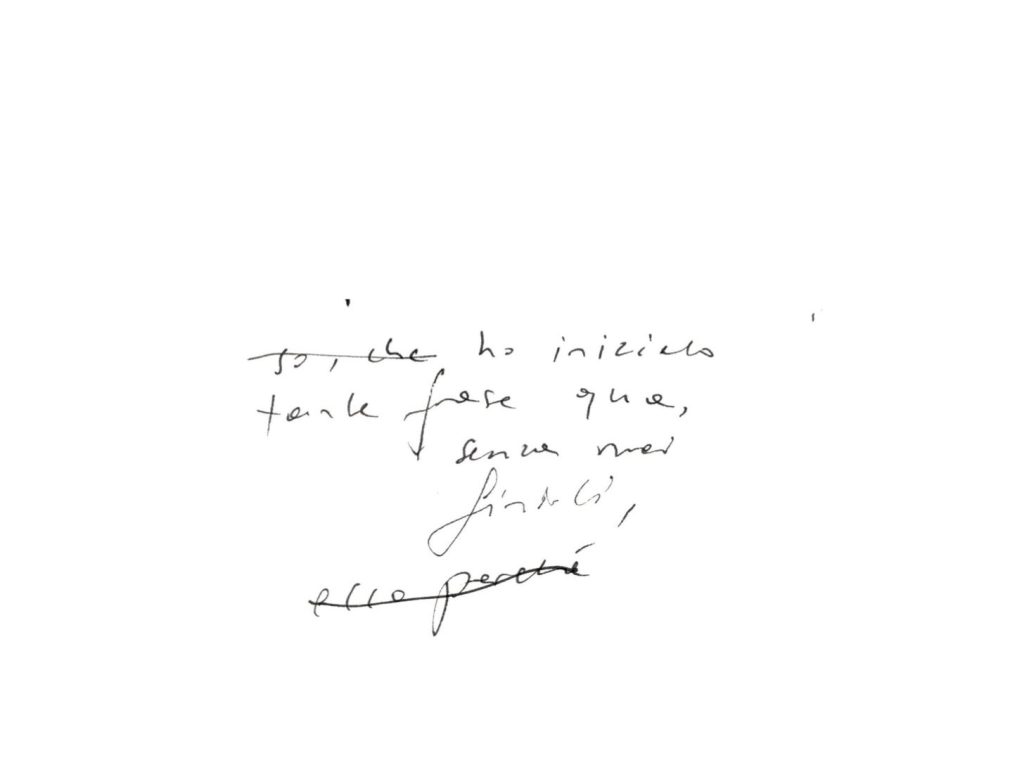 so, che ho iniziato
tante frase qua,
senza mai
finirli,
ecco perché